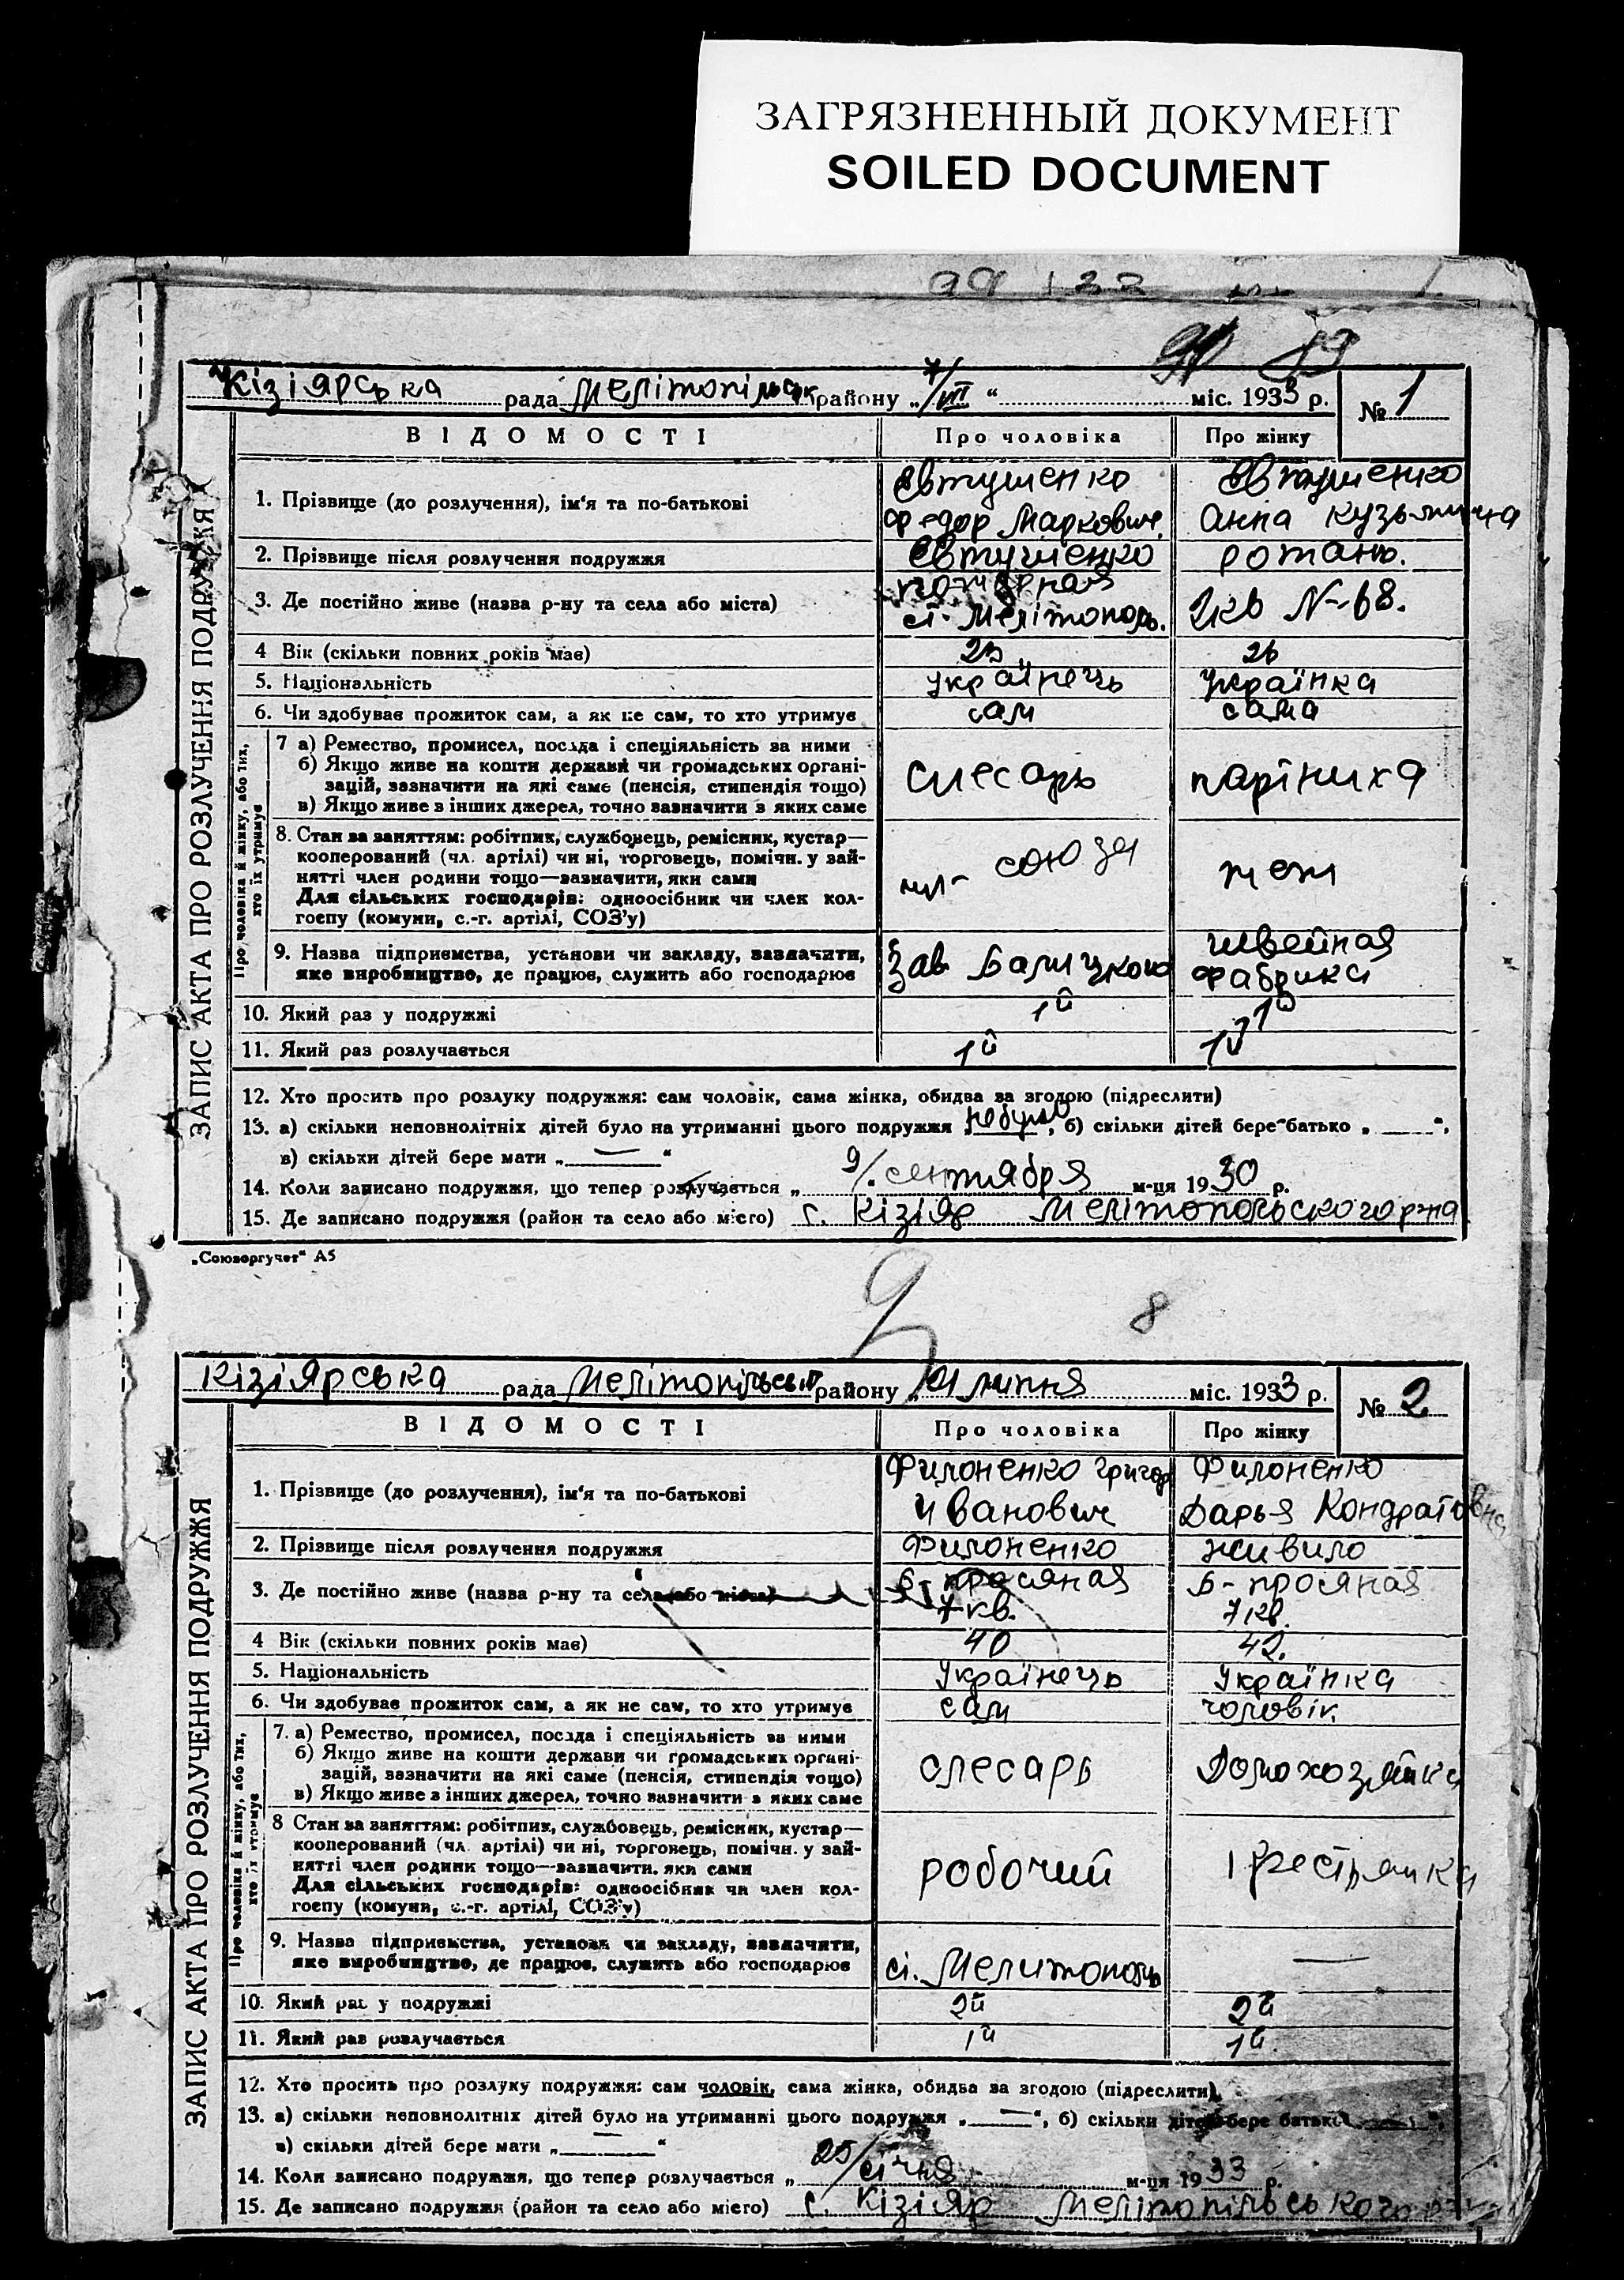 ЗАГРЯЗНЕННЫЙ ДОКУМЕНТ
SOILED DOCUMENT
Кізіярська рада Мелітопільськ району „7/VII“ міс. 1933 р. № 1
ЗАПИС АКТА ПРО РОЗЛУЧЕННЯ ПОДРУЖЖЯ
ВІДОМОСТІ Про чоловіка Про жінку
1. Прізвище (до розлучення), ім'я та по-батькові
Євтушенко Євтушенко
Федор Маркович Анна Кузьминична
2. Прізвище після розлучення подружжя Євтушенко Ротань.
3. Де постійно живе (назва р-ну та села або міста)
ст. Мелітополь. 2кв N-68.
4 Вік (скільки повних років має) 26
5. Національність Українець Українка
6. Чи здобуває прожиток сам, а як не сам, то хто утримує сам сама
Про чоловіка й жінку, або тих, хто їх утримує
7 а) Ремество, промисел, посада і спеціяльність за ними
б) Якщо живе на кошти держави чи громадських органі-
зацій, зазначити на які саме (пенсія, стипендія тощо)
в) Якщо живе в інших джерел, точно зазначити з яких саме
слесарь
8. Стан за заняттям: робітник, службовець, ремісник, кустар—
кооперований (чл. артілі) чи ні, торговець, помічн. у зай-
нятті член родини тощо—зазначити, яки сами
Для сільських господарів: одноосібник чи член кол-
госпу (комуни, с.-г. артілі, СОЗ'у)
чл- союза теж
9. Назва підприємства, установи чи закладу, зазначити,
яке виробництво, де працює, служить або господарює
Зав Балицкого швейная фабрика
10. Який раз у подружжі 1й 1й
11. Який раз розлучається 1й 1й
12. Хто просить про розлуку подружжя: сам чоловік, сама жінка, обидва за згодою (підреслити)
13. а) скільки неповнолітніх дітей було на утриманні цього подружжя „не було“, б) скільки дітей бере батько „ — “,
в) скільки дітей бере мати „ — “
14. Коли записано подружжя, що тепер розлучається „9/. сентября м-ця 1930 р.
15. Де записано подружжя (район та село або місто) с. Кізіяр Мелітопольского р-на
„Союзоргучет“ А5
8
Кізіярська рада Мелітопільськ району „ липня міс. 1933 р. № 2
ЗАПИС АКТА ПРО РОЗЛУЧЕННЯ ПОДРУЖЖЯ
ВІДОМОСТІ Про чоловіка Про жінку
1. Прізвище (до розлучення), ім'я та по-батькові
Филоненко Григор Филоненко
Иванович Дарья Кондратовна
2. Прізвище після розлучення подружжя Филоненко Живило
3. Де постійно живе (назва р-ну та села або міста)
Б-просяная Б-просяная
7кв. 7кв.
4 Вік (скільки повних років має) 40 42.
5. Національність Українець Українка
6. Чи здобуває прожиток сам, а як не сам, то хто утримує сам чоловік
Про чоловіка й жінку, або тих, хто їх утримує
7. а) Ремество, промисел, посада і спеціяльність за ними
б) Якщо живе на кошти держави чи громадських органі-
зацій, зазначити на які саме (пенсія, стипендія тощо)
в) Якщо живе з інших джерел, точно зазначити з яких саме
слесарь Домохозяйка
8 Стан за заняттям: робітник, службовець, ремісник, кустар—
кооперований (чл. артілі) чи ні, торговець, помічн. у зай-
нятті член родини тощо—зазначити, яки сами
Для сільських господарів: одноосібник чи член кол-
госпу (комуни, с.-г. артілі, СОЗ'у)
робочий крестьянка
9. Назва підприємства, установи чи закладу, зазначити,
яке виробництво, де працює, служить або господарює
ст. Мелитополь —
10. Який раз у подружжі 2й 2й
11. Який раз розлучається 1й 1й
12. Хто просить про розлуку подружжя: сам чоловік, сама жінка, обидва за згодою (підреслити)
13. а) скільки неповнолітніх дітей було на утриманні цього подружжя „ — “, б) скільки дітей бере батько „ — “,
в) скільки дітей бере мати „ — “
14. Коли записано подружжя, що тепер розлучається „25/січня м-ця 1933 р.
15. Де записано подружжя (район та село або місто) с. Кізіяр Мелітопільського